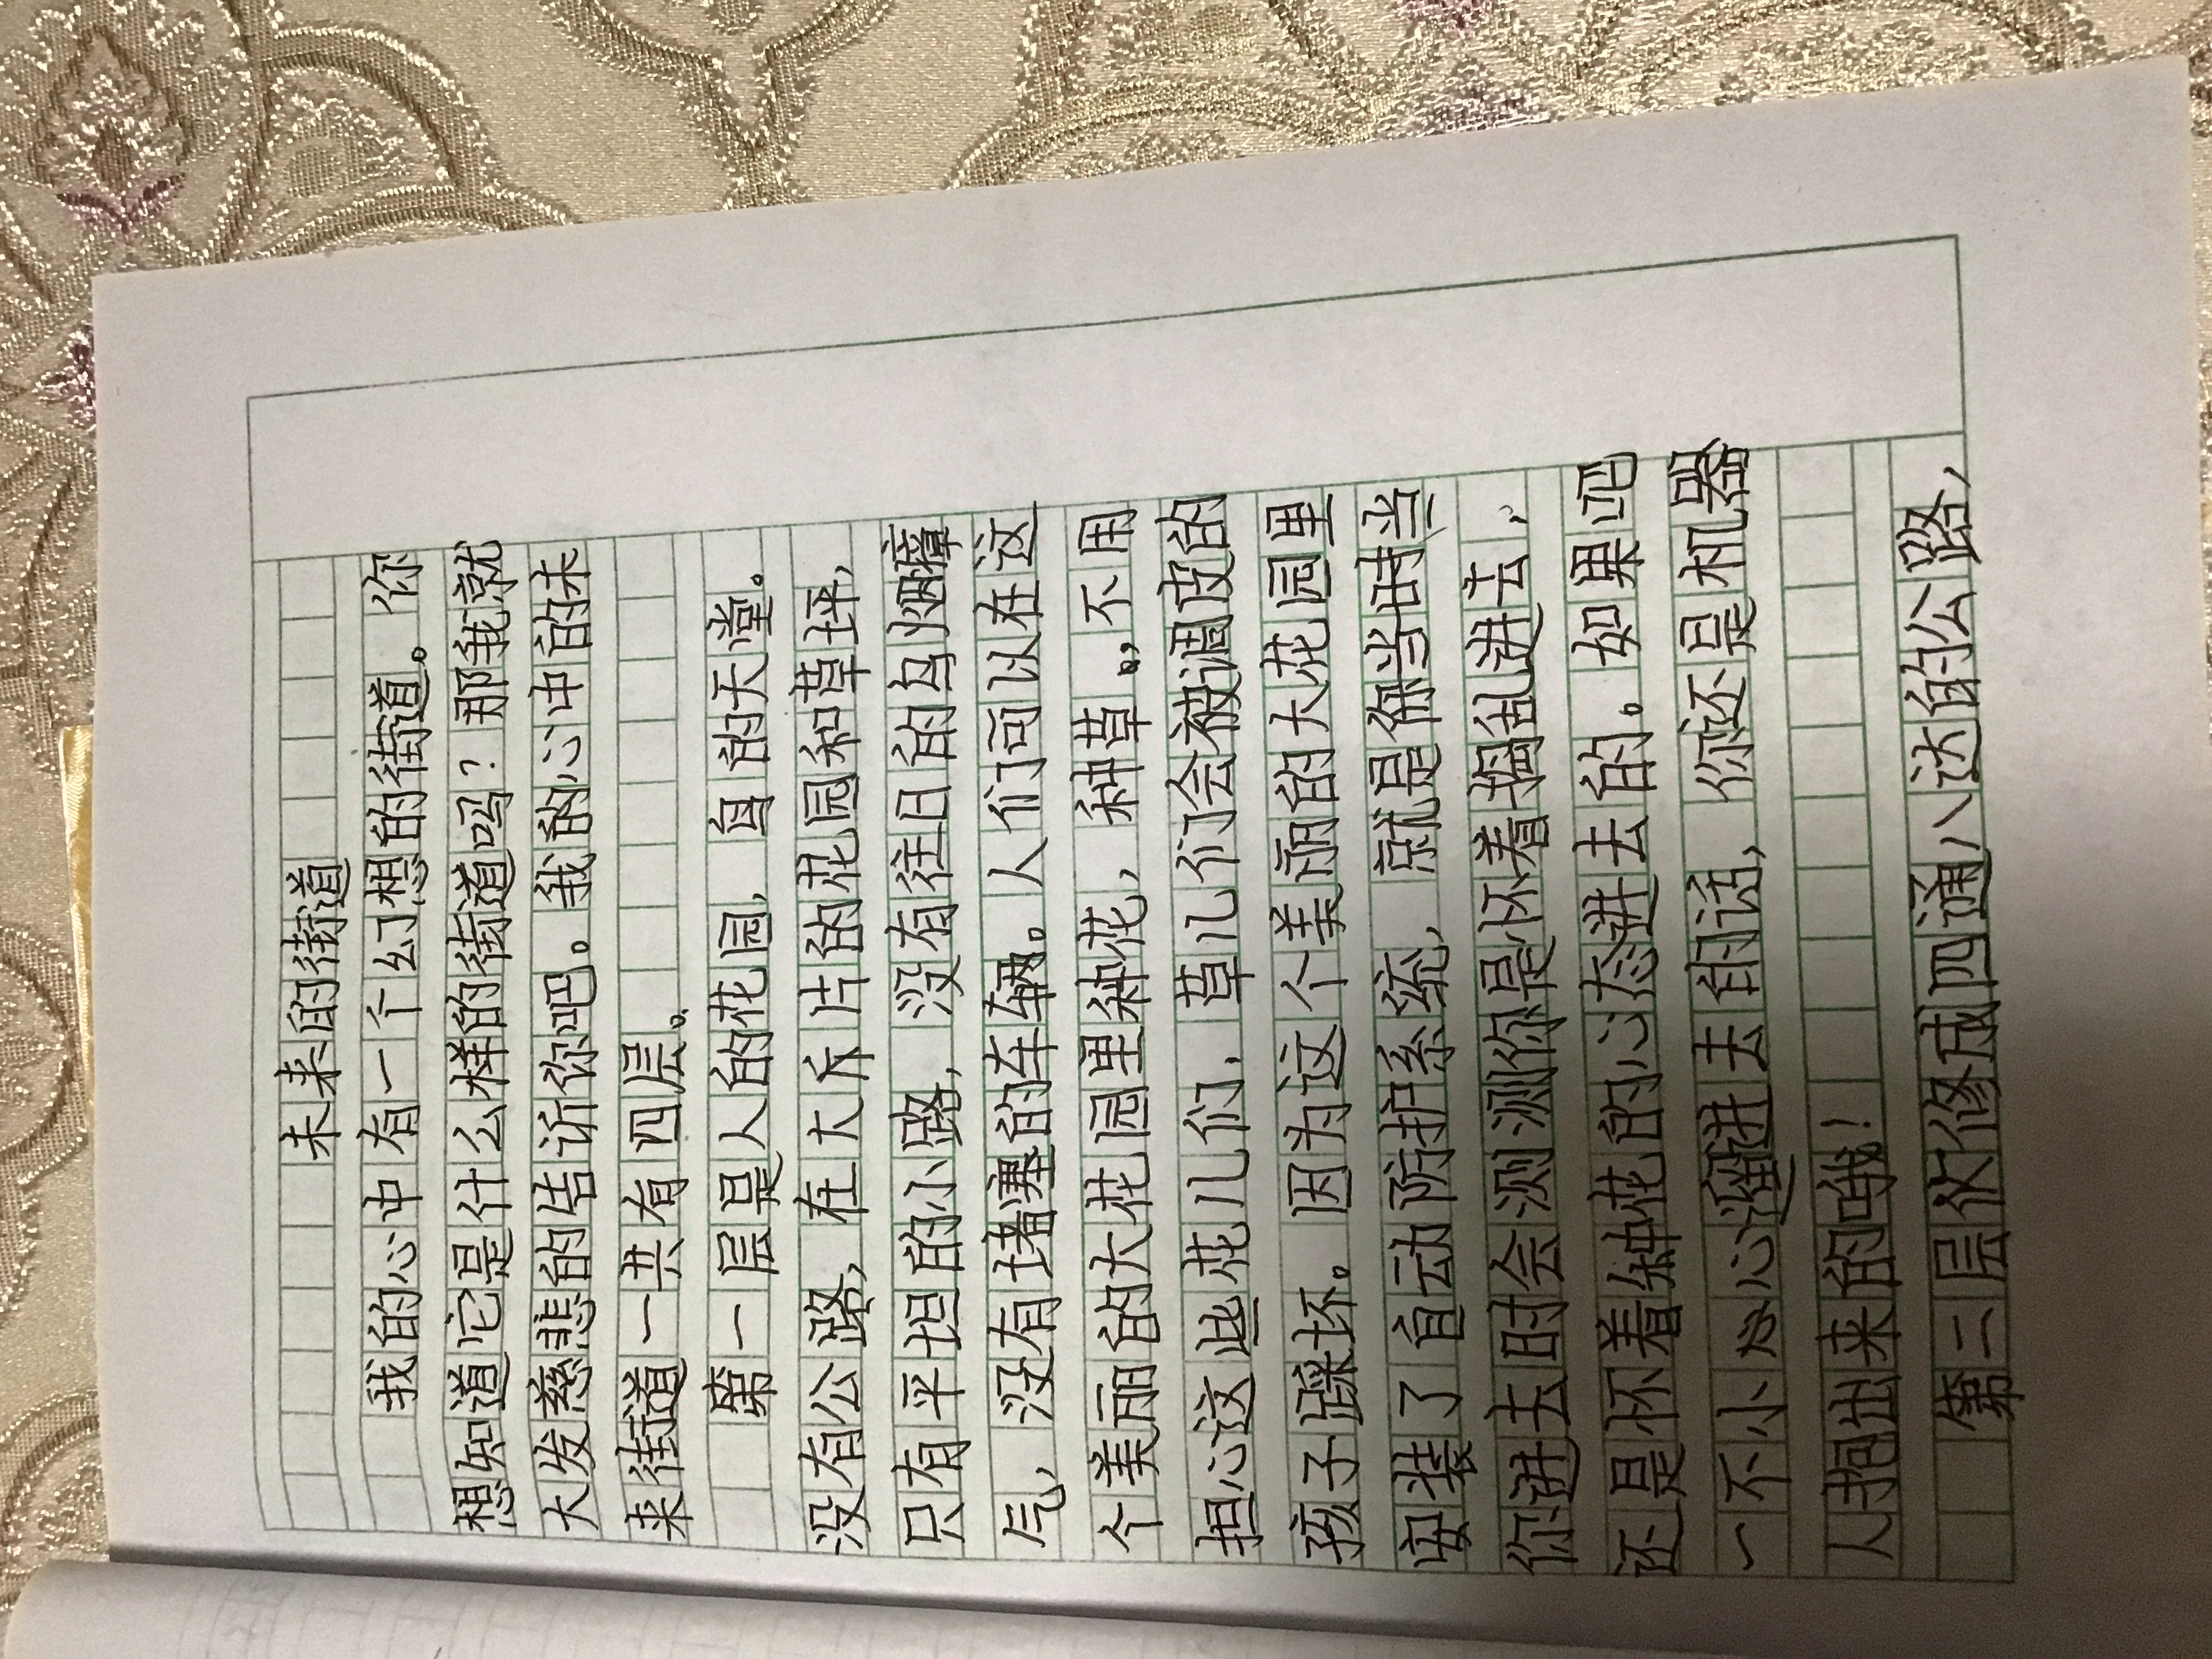 未来的街道
我的心中有一千幻想的街道。你
想知道它是什么样的街道吗？那我就
大发慈悲的告诉你吧。我的心中的未
来街道一共有四层。
第一层是人的花园，鸟的天堂。
没有公路，在大斥片的花园和草坪，
只有平坦的小路，没有往日的乌烟瘴
气，没有堵塞的车辆。人们可以在这
个美丽的大花园里种花，种草。不用
担心这些花儿们，草儿们会被调皮的
孩子踩坏。因为这个美丽的大花园里
安装了自动防护系统，就是你当时当
你进去时会测测你是怀着捣乱进去，
还是怀着种花的心态进去的。如果吧
一不小心心溜进去的话，你还是机器
人抱出来的哦！
第二层依修成四通八达的公路，